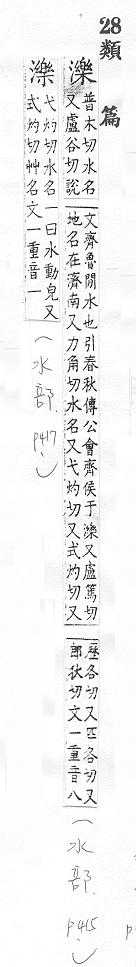 28類篇
濼
普木切水名
又盧谷切說
文齊魯間水也引春秋傳公會齊侯于濼又盧篤切
地名在濟南又力角切水名又弋灼切又式灼切又
歷各切又匹各切又
郎狄切文一重音八
(水部.p415.)
濼
弋灼切水名一曰水動皃又
式灼切艸名文一重音一
(水部.p417.)